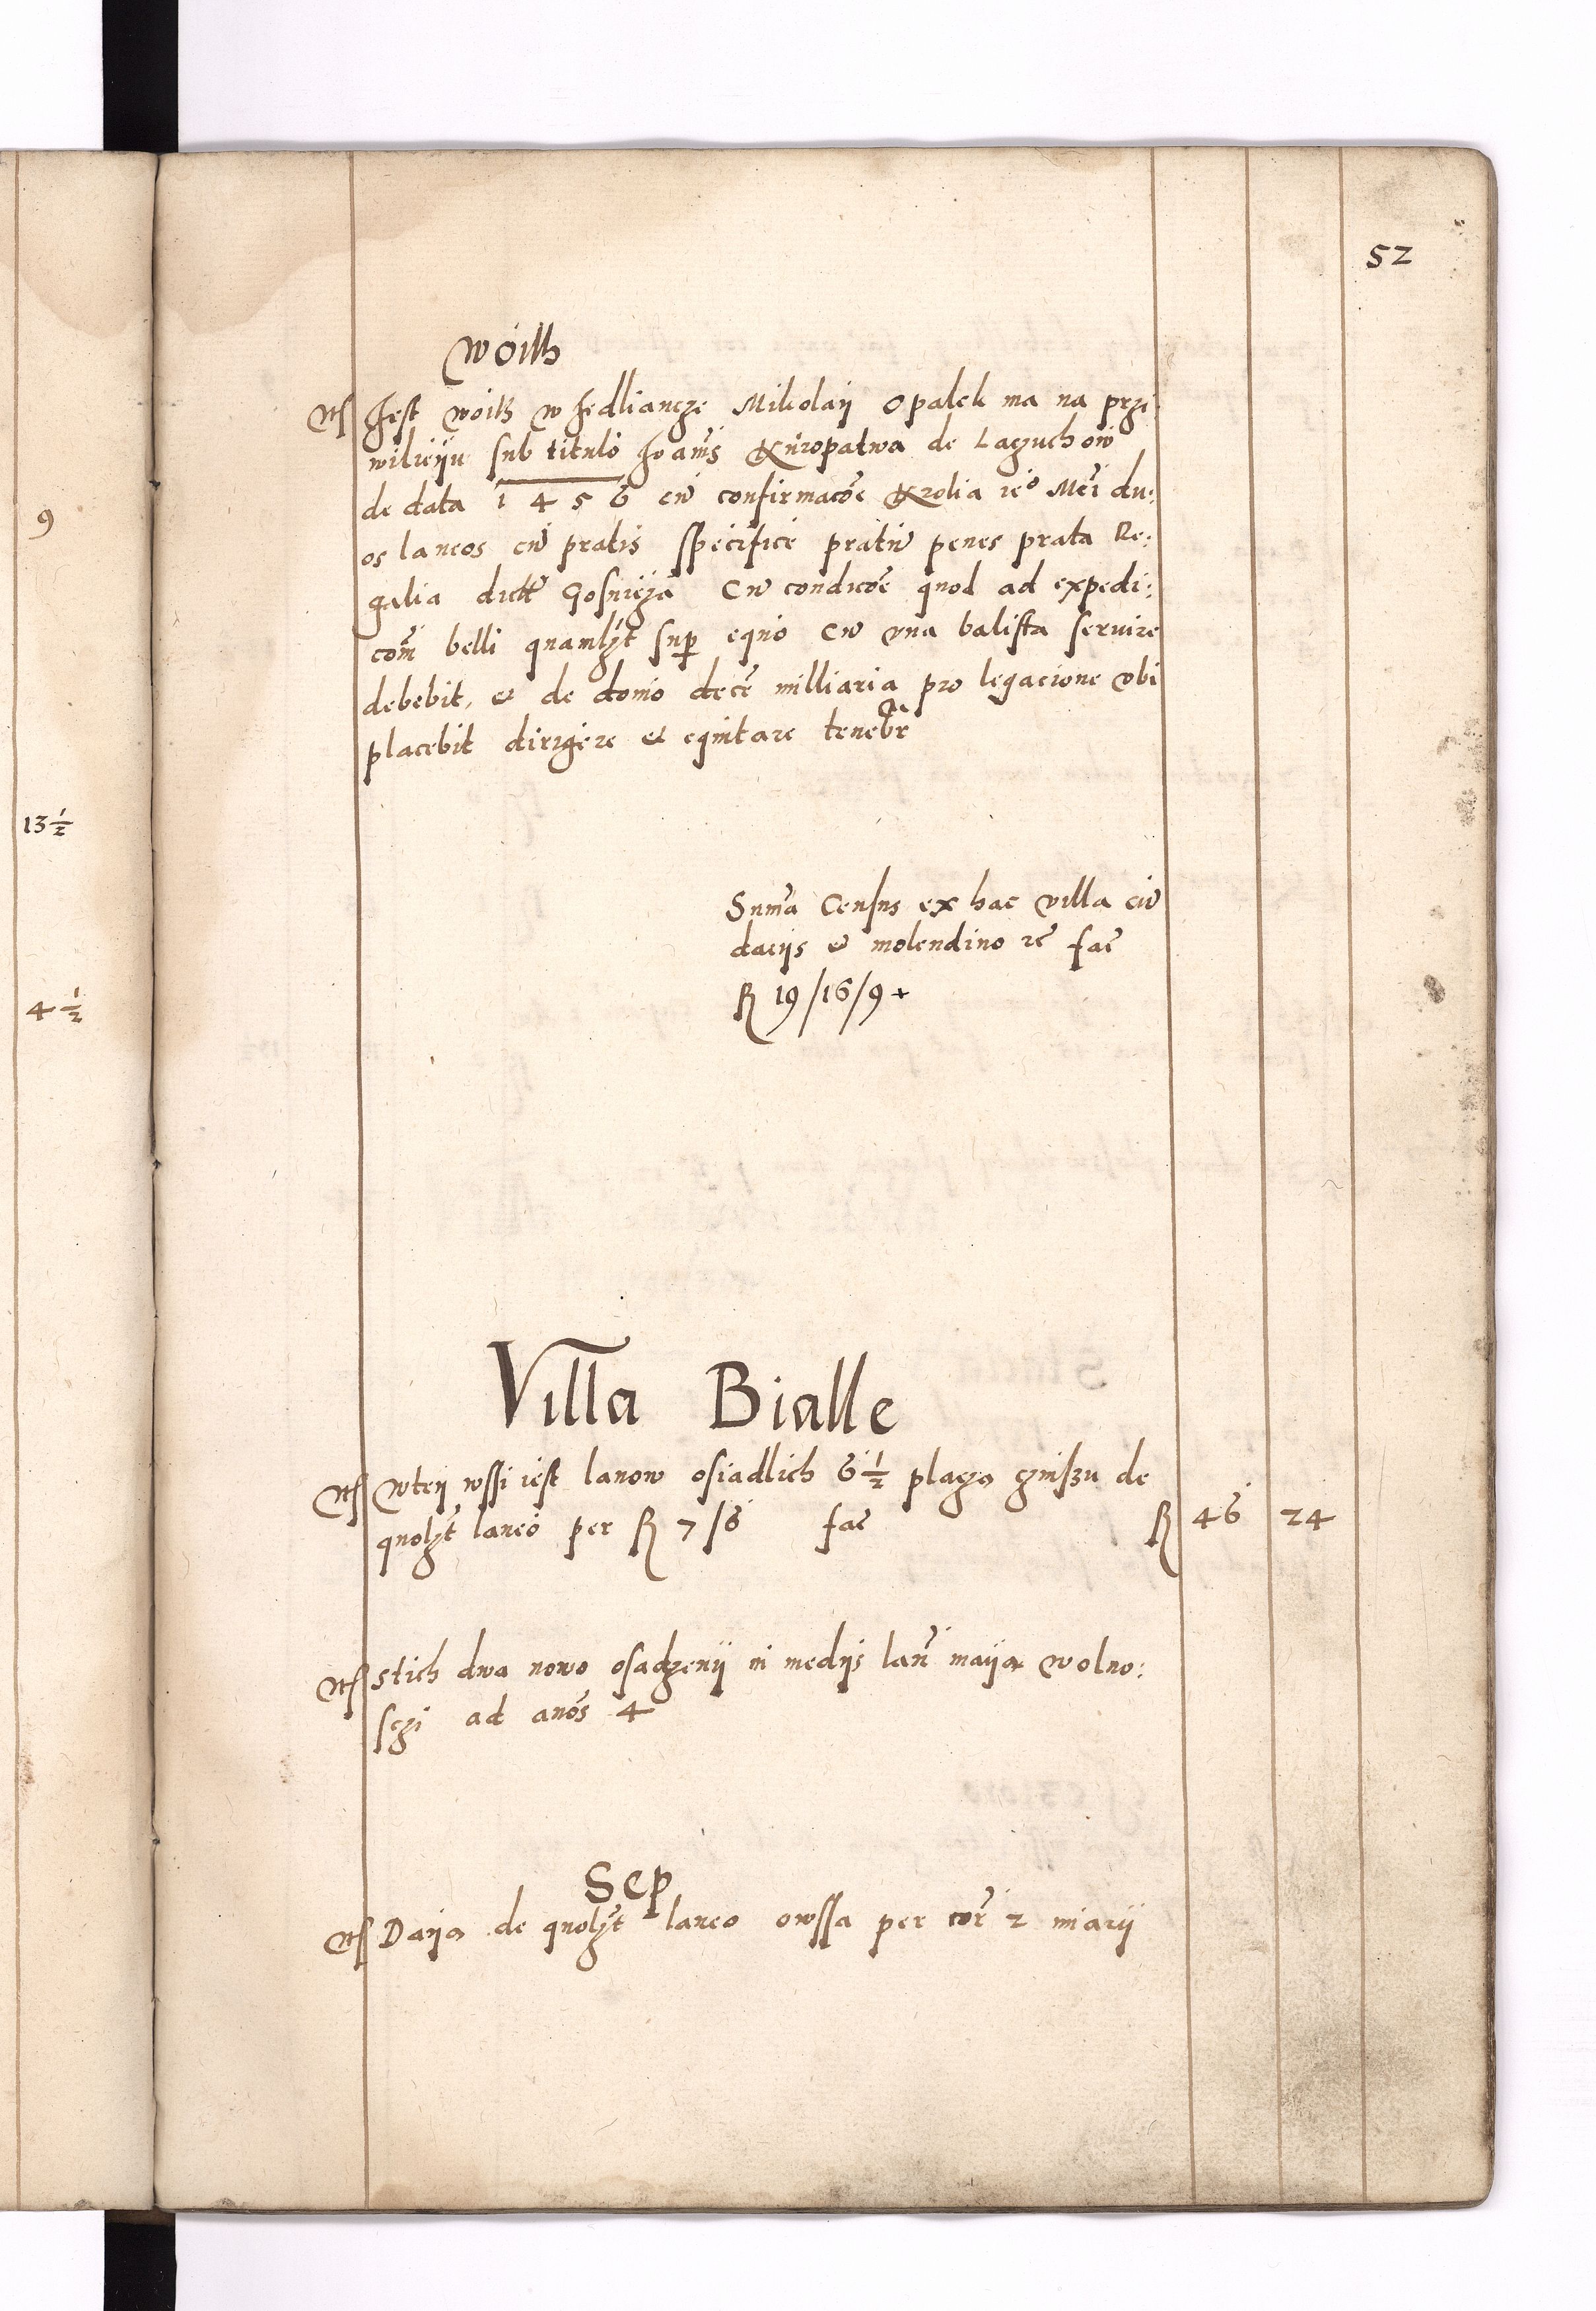 52
Woith
Its Jest woith w Jedliancze Mikolaij Opalek ma na przi
wilieiju sub titulo Joanis Kuropatwa de Laczuchow
de data 1456 cu confirmacoe Krolia ieo Mczi du:
os laneos cu pratis specifice pratu penes prata Re:
galia dictu Gosnieza Cu condicoe quod ad expedi:
com belli quamlzt sup equo Cu vna balista seruire
debebit, et de domo dece milliaria pro legacione vbi
placebit dirigere et equitare tenebr
Suma Census ex hac villa cu
dacijs et molendino re fac
R 19/16/9+
Villa Bialle
Its Wteij wssi iest lanow osiadlich 6 1/2 placza czinszu de
quolzt laneo per R 7/6 fac R 46 24
Its stich dwa nowo osadzenij in medijs lan maija wolno:
sczi ad anos 4
Sep
Its Daija de quolzt laneo owssa per cor 2 miarij
9
13 1/2
4 1/2